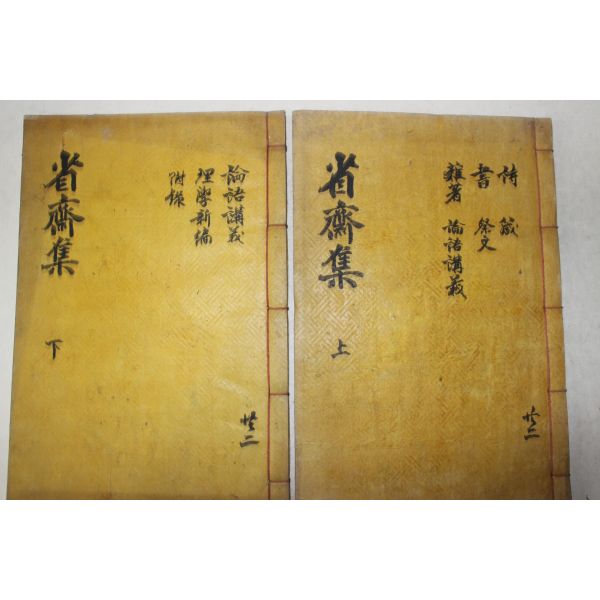 共二
詩 箴
書 祭文
雜著 論語講義
省齋集 上
共二
論語講義
理學新編
附錄
省齋集 下